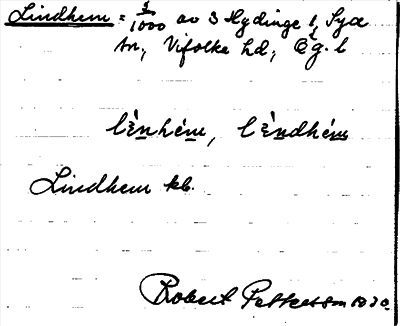 Lindhem = 1/1000 av 3 Hydinge 1, Sya
sn, Vifolka hd, Ög. l
lènhém, lèndhém
Lindhem kb.
Robert Pettersson 1930